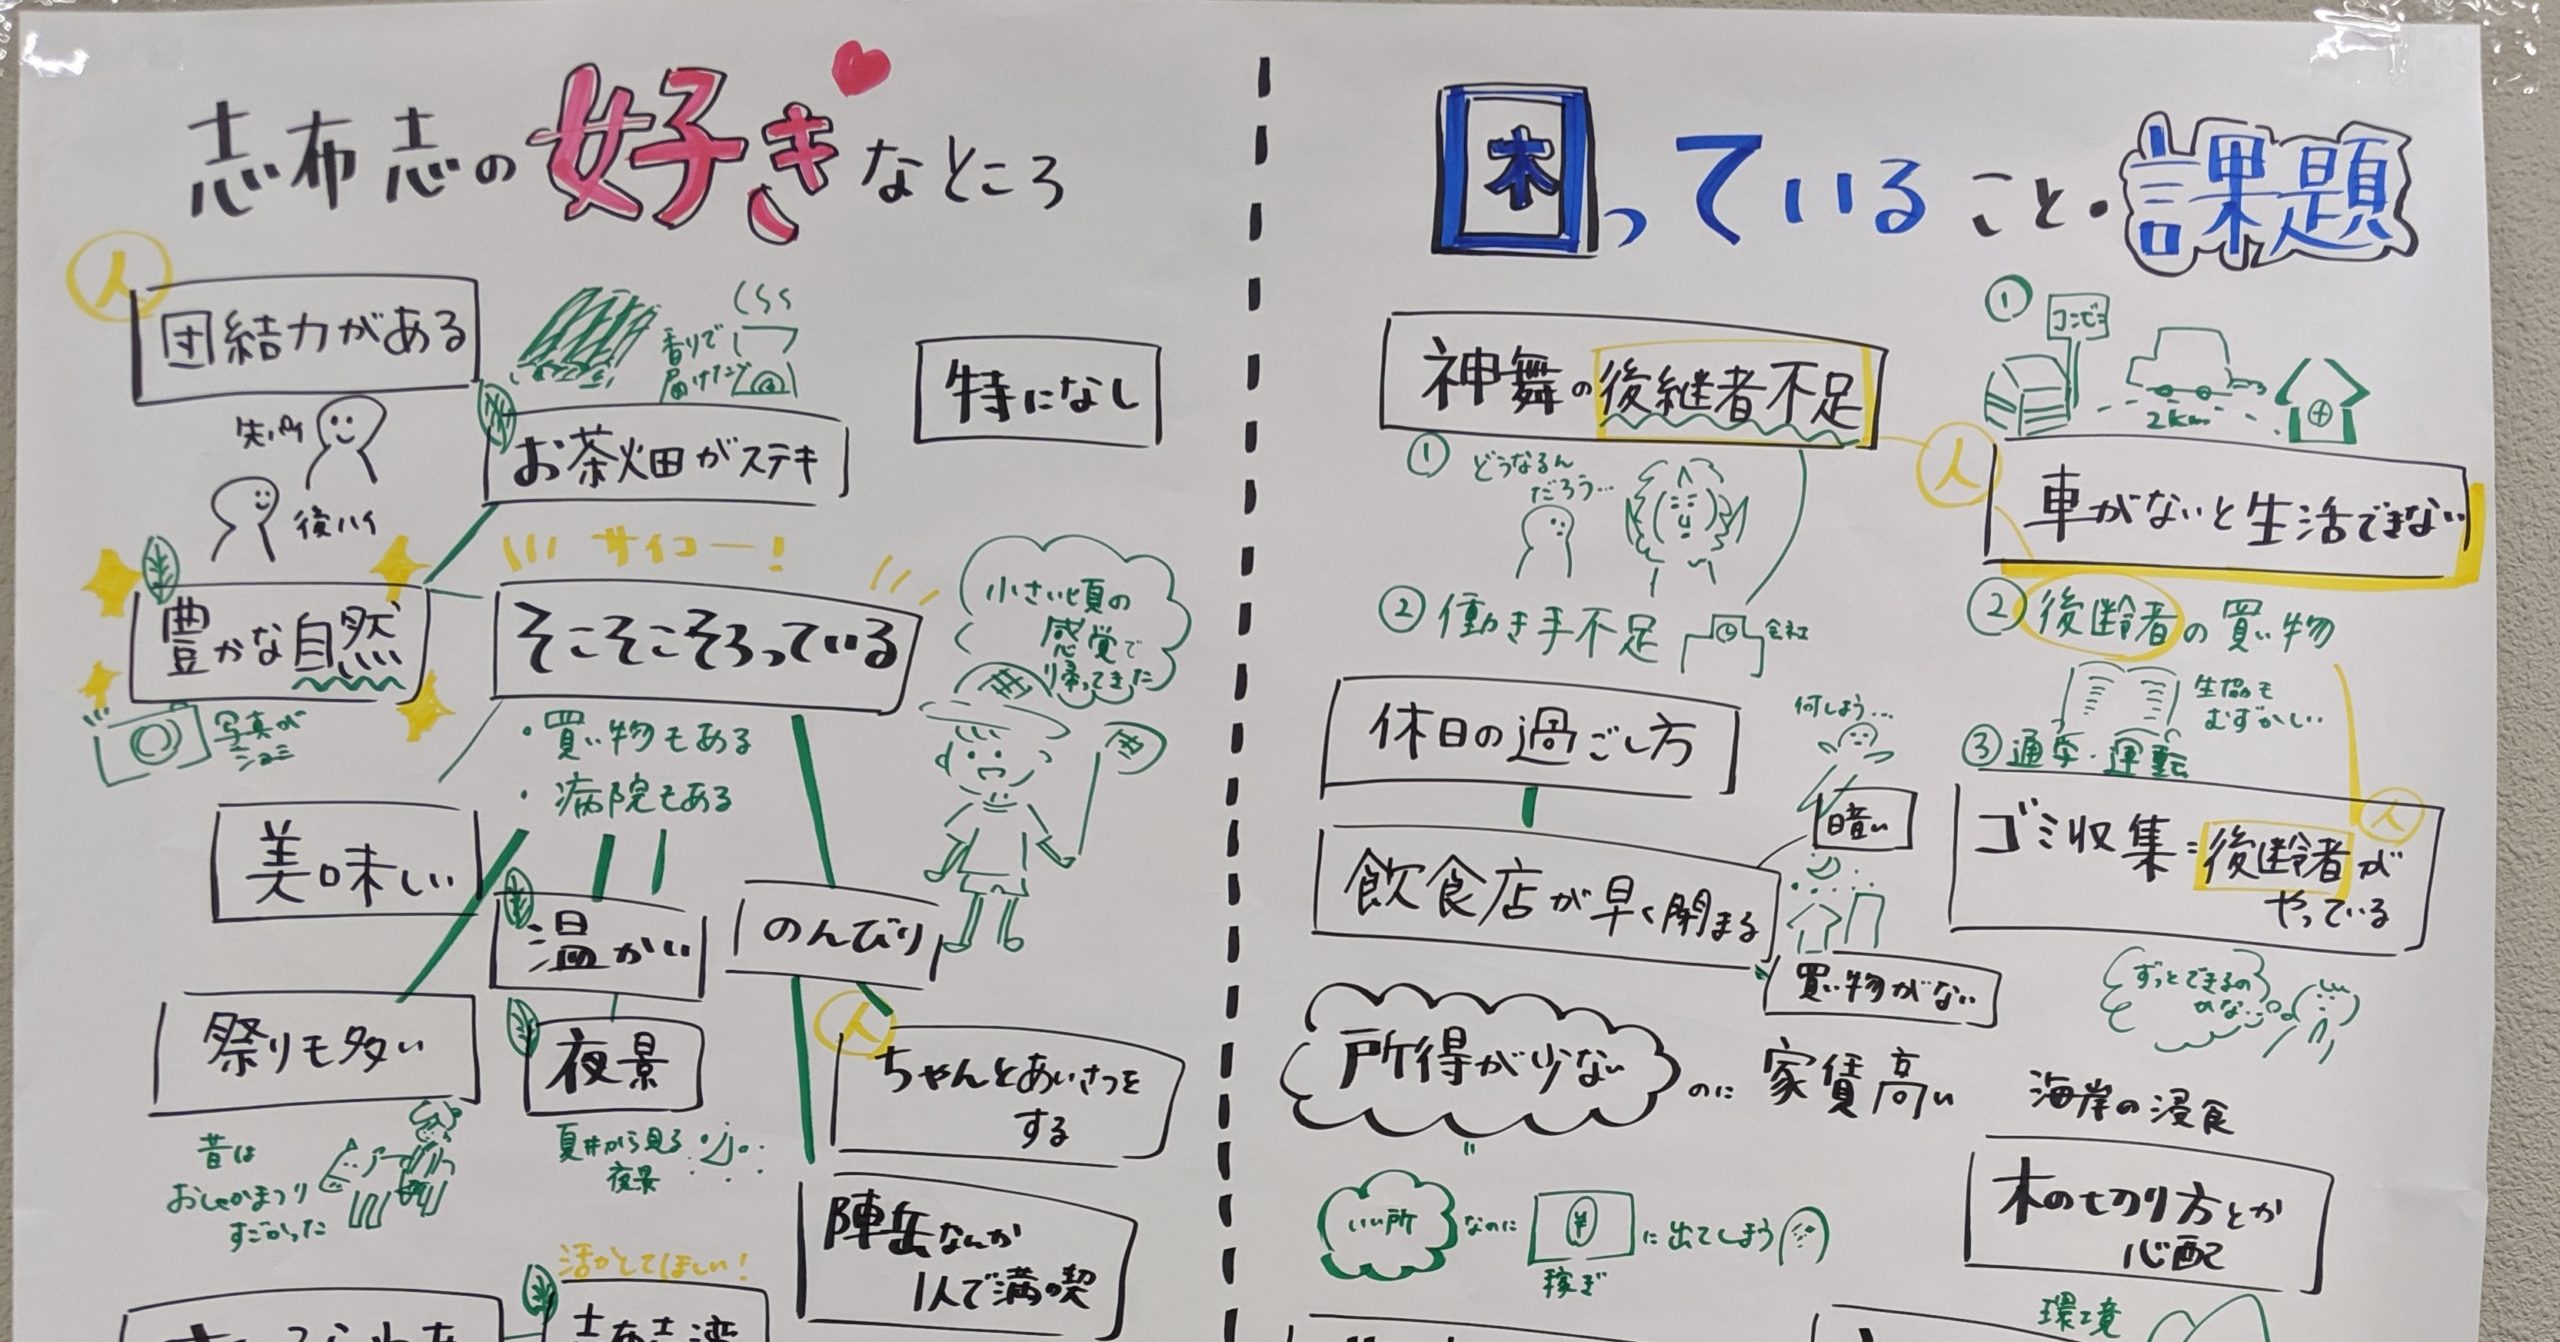 志布志の好きなところ
人
団結力がある
先パイ
後ハイ
香りで
届けたい
お茶畑がステキ
特になし
サイコー!
豊かな自然
写真が
そこそこそろっている
・買い物もある
・病院もある
小さい頃の
感覚で
帰ってきた
美味しい
温かい
のんびり
祭りも多い
昔は
おしゃかまつり
すごかった
夜景
夏井から見る
夜景
人
ちゃんとあいさつを
する
陣岳なんか
1人で満喫
活かしてほしい!
志布志湾
困っていること・課題
神舞の後継者不足
① どうなるん
だろう…
② 働き手不足
会社
人
① コンビニ
2km
車がないと生活できない
② 後齢者の買い物
生協も
むずかしい
③ 通学・運転
休日の過ごし方
何しよう…
暗い
飲食店が早く閉まる
買い物がない
人
ゴミ収集:後齢者が
やっている
ずっとできるの
かな…
所得が少ない のに 家賃高い
いい所 なのに ¥ に出てしまう
稼ぎ
海岸の浸食
木の切り方とか
心配
環境